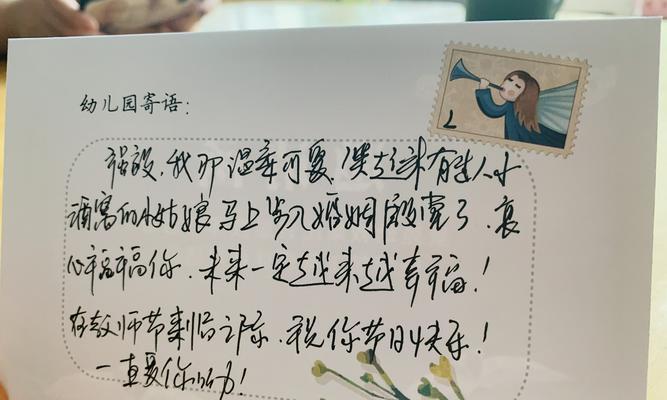 幼儿园寄语:
我那温柔可爱,
酒窝的小姑娘马上步入婚姻殿堂了、衷
心祝福你、未来一定越来越幸福!
在教师节来临之际、祝你节日快乐!
一直爱你的!